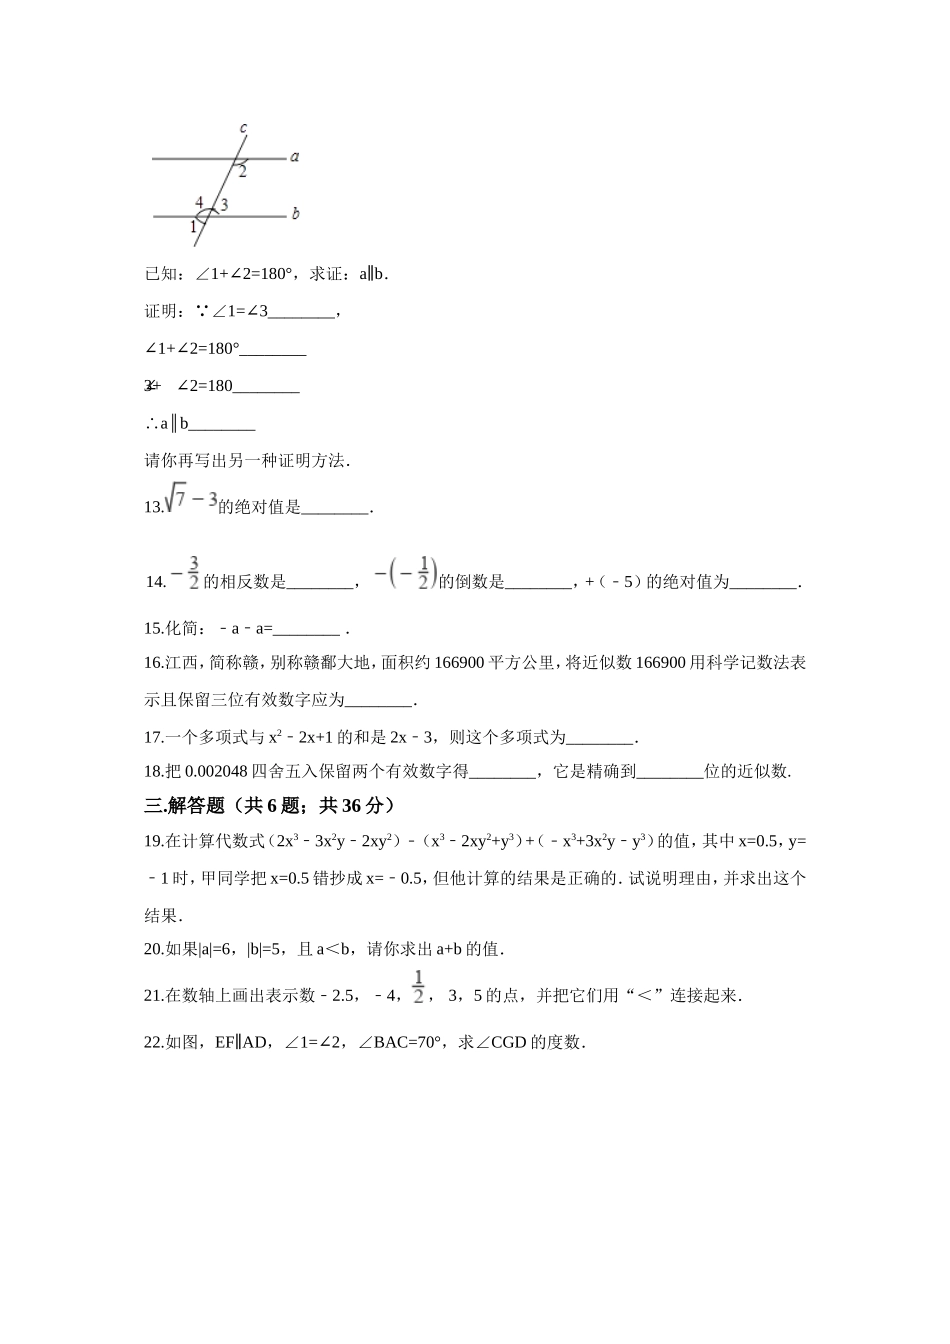 c
a
2
4 3
b
1
已知：∠1+∠2=180°，求证：a∥b．
证明：∵∠1=∠3________，
∠1+∠2=180°________
∠3+ ∠2=180________
∴a∥b________
请你再写出另一种证明方法．
13.√7－3的绝对值是________．
14.－3/2的相反数是________，－(－1/2)的倒数是________，+（﹣5）的绝对值为________．
15.化简：﹣a﹣a=________ ．
16.江西，简称赣，别称赣鄱大地，面积约 166900 平方公里，将近似数 166900 用科学记数法表
示且保留三位有效数字应为________．
17.一个多项式与 x²﹣2x+1 的和是 2x﹣3，则这个多项式为________．
18.把 0.002048 四舍五入保留两个有效数字得________，它是精确到________位的近似数.
三.解答题（共 6 题；共 36 分）
19.在计算代数式（2x³﹣3x²y﹣2xy²）﹣（x³﹣2xy²+y³）+（﹣x³+3x²y﹣y³）的值，其中 x=0.5，y=
﹣1 时，甲同学把 x=0.5 错抄成 x=﹣0.5，但他计算的结果是正确的．试说明理由，并求出这个
结果．
20.如果|a|=6，|b|=5，且 a＜b，请你求出 a+b 的值．
21.在数轴上画出表示数﹣2.5，﹣4，1/2， 3，5 的点，并把它们用“＜”连接起来．
22.如图，EF∥AD，∠1=∠2，∠BAC=70°，求∠CGD 的度数．